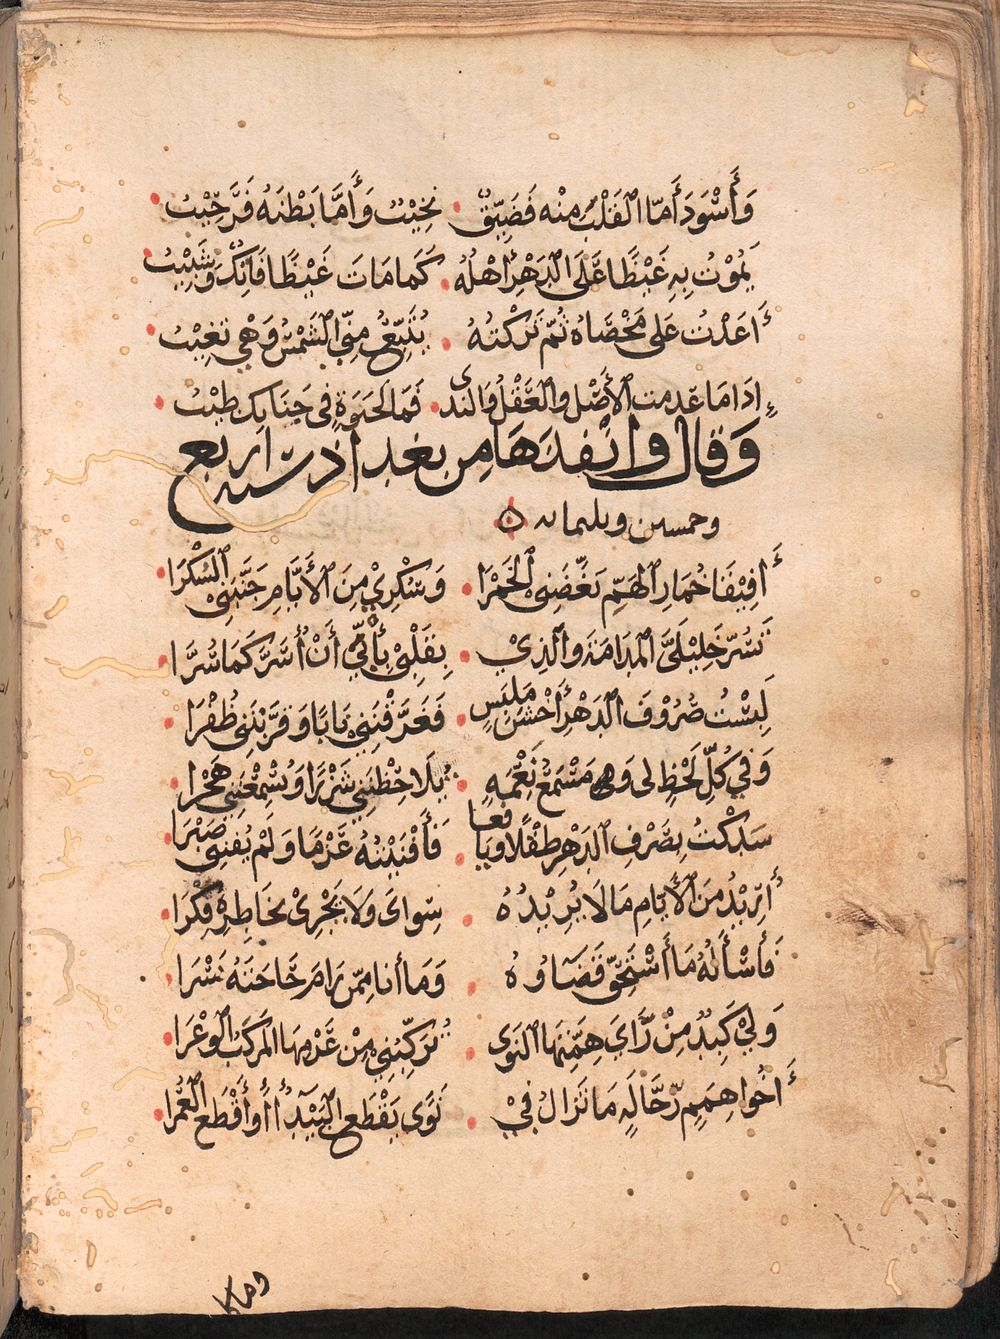 وَأَسْوَدَ أَمَّا الْقَلْبُ مِنْهُ فَضَيِّقٌ نَخِيْبٌ وَأَمَّا بَطْنُهُ فَرَحِيْبُ
يَمُوْتُ بِهِ غَيْظًا عَلَى الدَّهْرِ أَهْلُهُ كَمَا مَاتَ غَيْظًا فَاتِكٌ وَشَبِيْبُ
أَعَدْتُ عَلَى مَخْصَاهُ ثُمَّ تَرَكْتُهُ يُتَبِّعُ مِنِّي الشَّمْسَ وَهْيَ تَغِيْبُ
إِذَا مَا عَدِمْتَ الأَصْلَ وَالعَقْلَ وَالنَّدَى فَمَا لِحَيَوةٍ فِي جَنَابِكَ طِيْبُ
وقال وانفدها من بغداد سنة اربع
وخمسين وثلثمائه
أَفِيْقَا خُمَارُ الْهَمِّ بَغَّضَنِي الْخَمْرَا وَسُكْرِي مِنَ الْأَيَّامِ جَنَّبَنِي السُّكْرَا
تَسُرُّ خَلِيْلَيَّ الْمُدَامَةُ وَالَّذِيْ بِقَلْبِيْ يَأْبَى أَنْ أُسَرَّ كَمَا سُرَّا
لَبِسْتُ صُرُوْفَ الدَّهْرِ أَخْشَنَ مَلْبَسٍ فَعَرَّقْنَنِيْ نَابًا وَفَرَّيْنَنِي ظُفْرَا
وَفِيْ كُلِّ لَحْظٍ لِي وَهِي مَسْمَعٍ نَغْمَةٍ يُلَاحِظْنَنِيْ شَزْرًا وَيُسْمِعْنَنِيْ هُجْرَا
سَدِكْتُ بِصَرْفِ الدَّهْرِ طِفْلًا وَيَافِعًا فَأَفْنَيْتُهُ عَزْمًا وَلَمْ يُفْنِنِيْ صَبْرَا
أُرِيْدُ مِنَ الْأَيَّامِ مَا لَا يُرِيْدُهُ سِوَايَ وَلَا يَجْرِيْ بِخَاطِرِهِ فِكْرَا
فَأَسْأَلُهُ مَا أَسْتَحِقُّ قَضَاؤُهُ وَمَا أَنَا مِمَّنْ رَامَ حَاجَتَهُ بَسْرَا
وَلِيْ كَبِدٌ مِنْ رَأْيِ هِمَّتِهَا النَّوَى تُرَكِّبُنِيْ مِنْ عَزْمِهَا الْمَرْكَبَ الْوَعْرَا
أَخُو هِمَمٍ رَحَّالَةٍ مَا تَزَالُ فِيْ نَوًى يَقْطَعُ الْبَيْدَاءَ أَوْ أَقْطَعُ الْعُمْرَا
ومن كان